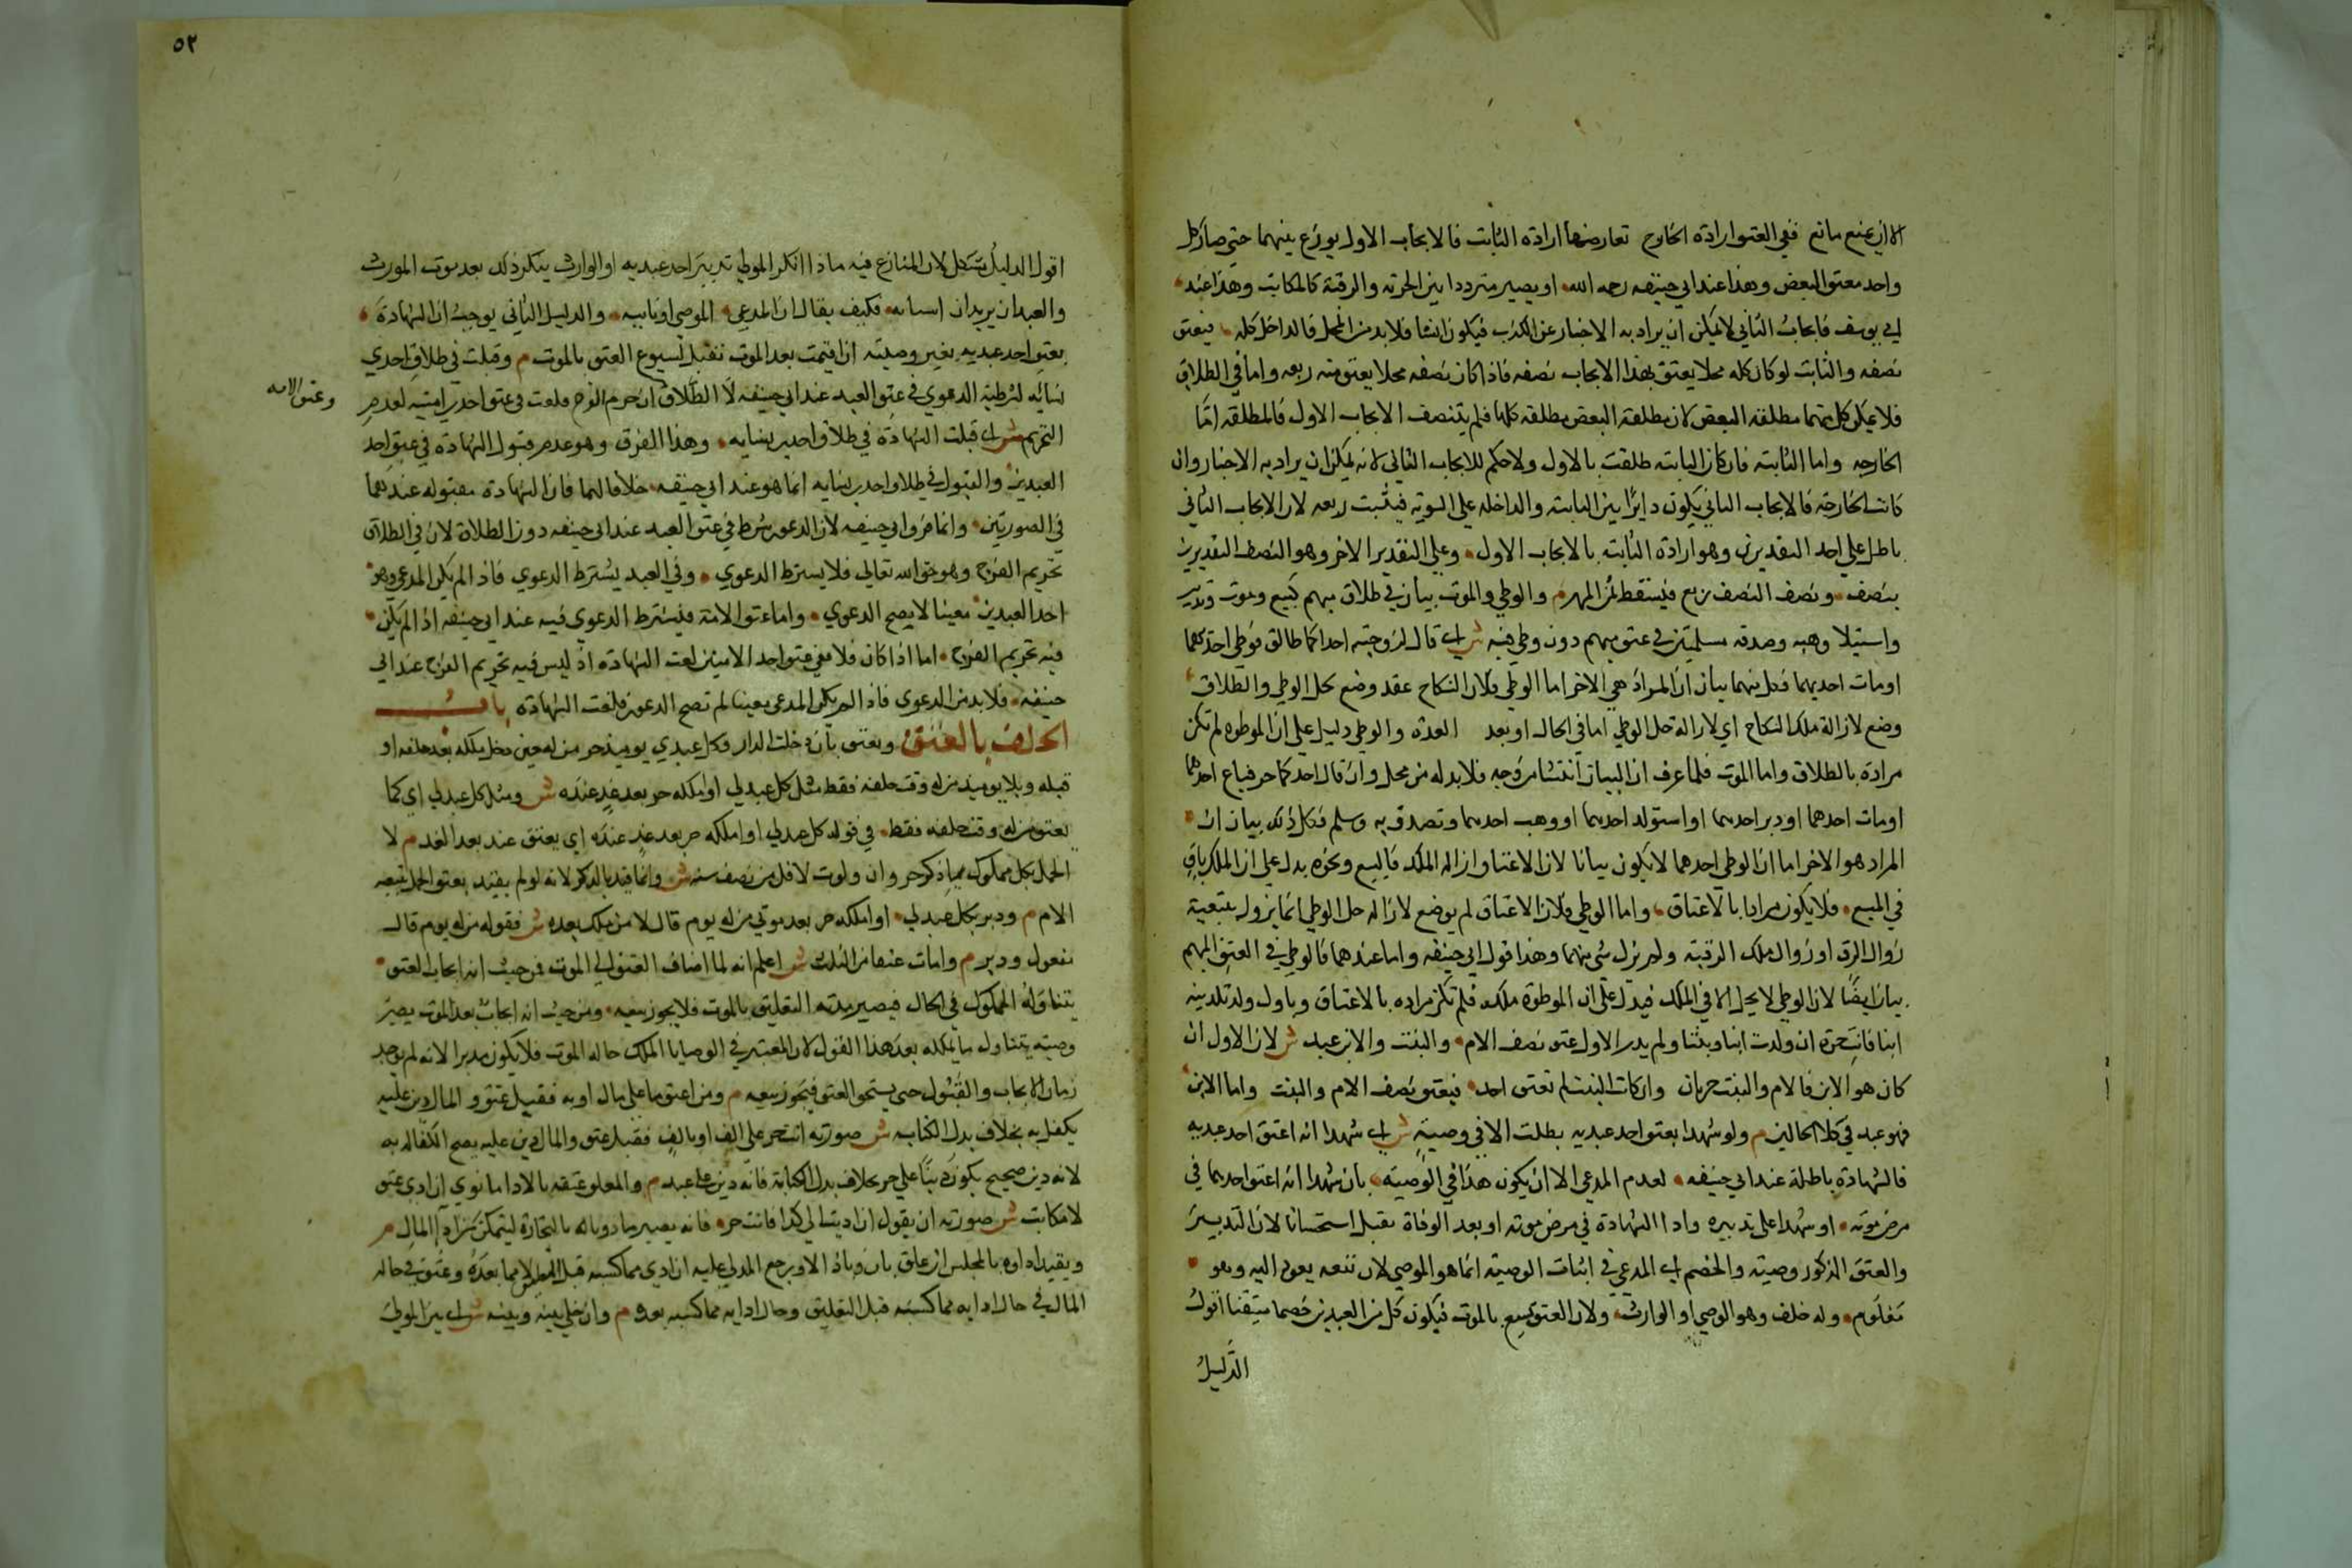 الا ان يمنع مانع ففي العتق ارادة الخارج تعارضها ارادة الثابت فالايجاب الاول يوزع بينهما حتى صار كل
واحد معتق البعض وهذا عند ابي حنيفه رحمه الله او يصير مترددا بين الحرية والرقية كالمكاتب وهذا عند
ابي يوسف فايجاب الثاني لا يمكن ان يراد به الاخبار عن الكذب فيكون انشا فلا بد من المحل فالداخل كله فيعتق
نصفه والثابت لو كان كله محلا يعتق بهذا الايجاب نصفه فاذا كان نصفه محلا يعتق منه ربعه واما في الطلاق
فلا يمكن كل منهما مطلقه البعض لان مطلقة البعض مطلقه كلها فلم يتنصف الايجاب الاول فالمطلقه اما
الخارجه واما الثابته فان كان الثابته طلقت بالاول ولا حكم للايجاب الثاني لانه يمكن ان يراد به الاخبار وان
كانت الخارجة فالايجاب الثاني يكون دايرا بين الثابته والداخله على السوية فيثبت ربعه لان الايجاب الثاني
باطل على احد التقديرين وهو ارادة الثابته بالايجاب الاول وعلى التقدير الاخر وهو النصف التقديرين
بنصف ونصف النصف ربع فيسقط ثمن المهر م والوطي والموت بيان في طلاق مبهم كبيع وموت وتدبير
واستيلا وهبه وصدقه مسلمتين في عتق مبهم دون وطي فيه ش اي قال لزوجتيه احداكما طالق فوطي احدهما
او مات احديهما فكل منهما بيان ان المراد هي الاخر اما الوطي فلان النكاح عقد وضع لحل الوطي والطلاق
وضع لازالة ملك النكاح اي لازالة حل الوطي اما في الحال او بعد العدة والوطي دليل على ان الموطوه لم تكن
مرادة بالطلاق واما الموت فلما عرف ان البيان انشا من وجه فلا بد له من محل وان قال احدكما حر فباع احدهما
او مات احدهما او دبر احدهما او استولد احدهما او وهب احدهما وتصدق به وسلم فكل ذلك بيان ان
المراد هو الاخر اما ان الوطي احدهما لا يكون بيانا لان الاعتاق ازاله الملك فالبيع ونحوه يدل على ان الملك باق
في المبيع فلا يكون مرادا بالاعتاق واما الوطي فلان الاعتاق لم يوضع لازاله حل الوطي انما يزول بتبعية
زوال الرق او زوال ملك الرقبة ولم يزل شي منهما وهذا قول ابي حنيفه واما عندهما فالوطي في العتق المبهم
بيان ايضا لان الوطي لا يحل الا في الملك فيدل على ان الموطوة ملكه فلم تكن مراده بالاعتاق وباول ولد تلدينه
ابنا فانت حرة ان ولدت ابنا وبنتا ولم يدر الاول عتق نصف الام والبنت والابن عبد ش لان الاول ان
كان هو الابن فالام والبنت حرتان وان كان البنت لم تعتق احد فيعتق نصف الام والبنت واما الابن
فهو عبد في كلا الحالين م ولو شهدا بعتق احد عبديه بطلت الا في وصية ش اي شهدا انه اعتق احد عبديه
فالشهادة باطلة عند ابي حنيفه لعدم المدعي الا ان يكون هذا في الوصية بان شهدا انه اعتق احدهما في
مرض موته او شهدا على تدبيره وادا الشهادة في مرض موته او بعد الوفاة تقبل استحسانا لان التدبير
والعتق المذكور وصية والخصم اي المدعي في اثبات الوصية انما هو الموصي لان نفعه يعود اليه وهو
معلوم وله خلف وهو الوصي او الوارث ولان العتق يشيع بالموت فيكون كل من العبدين خصما متيقنا اقول
الدليل
٥٢
اقول الدليل مشكل لان المنازع فيه ما اذا انكر المولي تدبير احد عبديه او الوارث ينكر ذلك بعد موت المورث
والعبدان يريدان اثباته فكيف يقال ان المدعي الموصي او نايبه والدليل الثاني يوجب ان الشهادة
بعتق احد عبديه بغير وصية ان اقيمت بعد الموت تقبل لشيوع العتق بالموت م وقبلت في طلاق احدي
نسائه لشرطية الدعوي في عتق العبد عند ابي حنيفه لا الطلاق ان حرم الفرج فلغت في عتق احدي امتيه لعدم
وعتق الامه
التحريم ش اي قبلت الشهادة في طلاق احدي نسايه وهذا الفرق وهو عدم قبول الشهادة في عتق احد
العبدين والقبول في طلاق احدي نسايه انما هو عند ابي حنيفه خلافا لهما فان الشهادة مقبوله عندهما
في الصورتين وانما فرق ابي حنيفه لان الدعوي شرط في عتق العبد عند ابي حنيفه دون الطلاق لان في الطلاق
تحريم الفرج وهو حق الله تعالي فلا يشترط الدعوي وفي العبد يشترط الدعوي فاذا لم يكن المدعي وهو
احد العبدين معينا لا يصح الدعوي واما عتق الامة فيشترط الدعوي فيه عند ابي حنيفه اذا لم يكن
فيه تحريم الفرج اما اذا كان فلا ففي عتق احد الامتين لغت الشهادة اذ ليس فيه تحريم الفرج عند ابي
حنيفه فلا بد من الدعوي فاذا لم يكن المدعي معينا لم تصح الدعوي فلغت الشهادة باب
الحلف بالعتق ويعتق بان دخلت الدار فكل عبد لي يوميذ حر من له حين دخل ملكه بعد حلفه او
قبله وبلا يوميذ من له وقت حلفه فقط مثل كل عبد لي او املكه حر بعد غد عنده ش ومثل كل عبد لي اي كما
يعتق من له وقت حلفه فقط في قوله كل عبد لي او املكه حر بعد غد عنده اي يعتق عند بعد الغد م لا
الحمل بكل مملوك لي ذكر حر وان ولدت لاقل من نصف سنه ش وانما قيد بالذكر لانه لو لم يقيد يعتق الحمل بتبعيه
الام م ودبر بكل عبد لي او املكه حر بعد موتي من له يوم قال لا من ملك بعده ش فقوله من له يوم قال
مفعول ودبر م وان مات عتقا من الثلث ش اعلم انه لما اضاف العتق الي الموت فمن حيث انه ايجاب العتق
يتناوله المملوك في الحال فيصير مدبرا التعليق بالموت فلا يجوز بيعه ومن حيث انه ايجاب بعد الموت يصير
وصيته يتناول ما يملكه بعد هذا القول لان المعتبر في الوصايا الملك حاله الموت فلا يكون مدبرا لانه لم يوجد
زمان الايجاب والقبول حتي يستحق العتق فيجوز بيعه م ومن اعتق ما علي مال او به فقبل عتق والمال دين عليه
يكفل به بخلاف بدل الكتابه ش صورته انت حر على الف او بالف فقبل عتق والمال دين عليه يصح الكفاله به
لانه دين صحيح يكون دينا علي حر بخلاف بدل الكتابة فانه دين على عبد م والمعلق عتقه بالادا ماذون ان ادي عتق
لا مكاتب ش صورته ان يقول ان اديت الي كذا فانت حر فانه يصير ماذونا له بالتجارة ليتمكن من ادآ المال م
ويقيد اداوه بالمجلس ان علق بان وباذا لا ويرجع المولي عليه ان ادي مما كسبه قبل التعليق لا مما بعده وعتق في حاله
المال في حال ادايه مما كسبه قبل التعليق وحال ادايه مما كسبه بعده م وان خلي بينه وبينه ش اي بين المولي